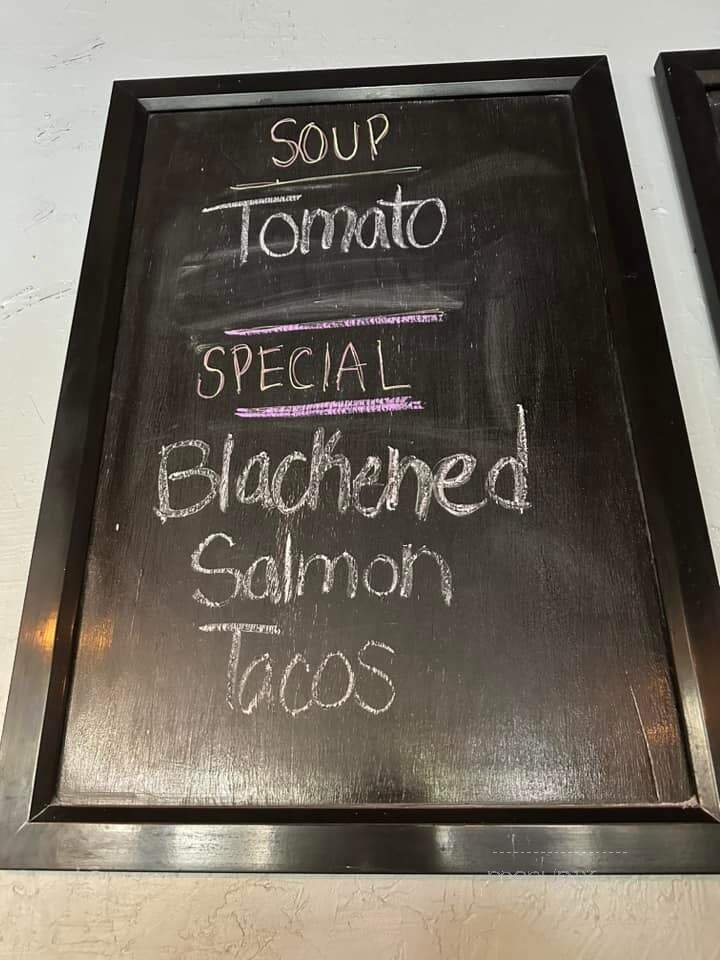 SOUP
Tomato
SPECIAL
Blackened
Salmon
Tacos
menupix